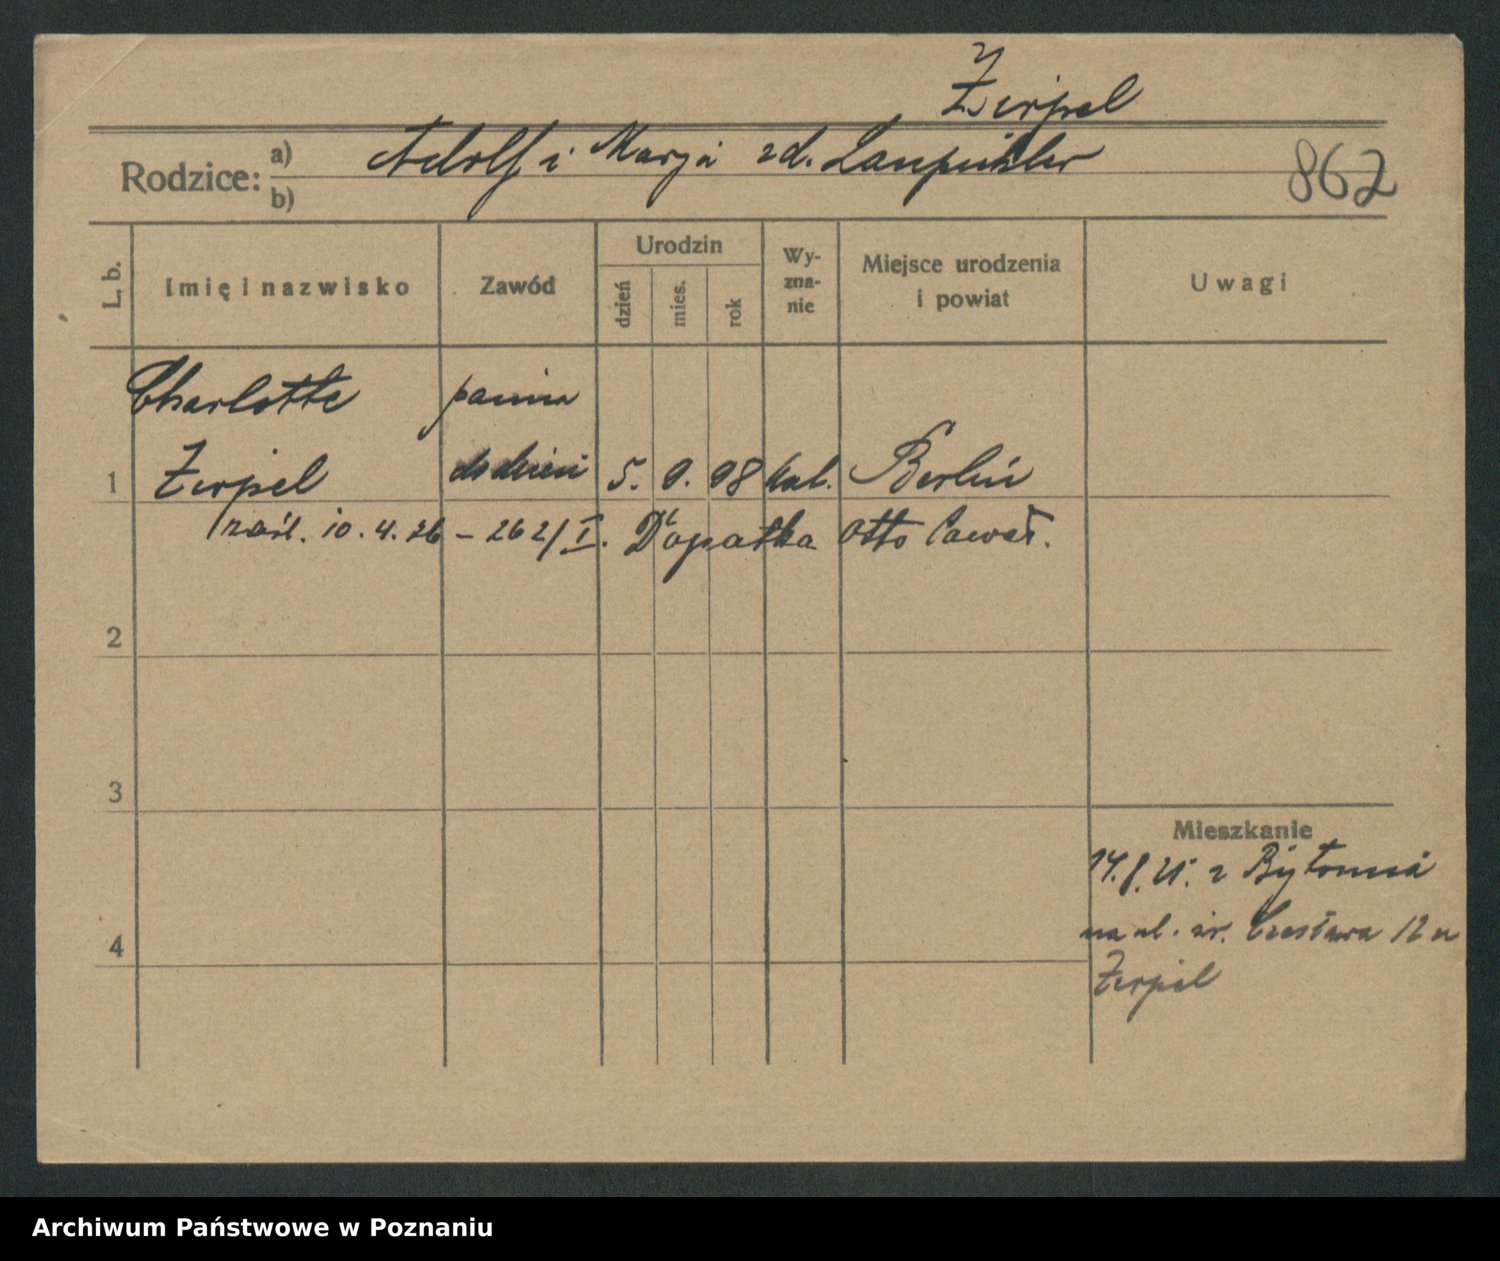 Zerpel
Rodzice: a) Adolf i Marja zd.
b)
862
L. b. Imię i nazwisko Zawód Urodzin dzień mies. rok Wy-zna-nie Miejsce urodzenia i powiat Uwagi
Charlotte panna
1 Zerpel 5. 9. 98 kat. Berlin
zaśl. 10. 4. 26 – 262/I. Łopatka Otto
2
3
Mieszkanie
14. 8. 25. z Bytomia
na ul. św. Czesława 12 u
4
Zerpel
Archiwum Państwowe w Poznaniu